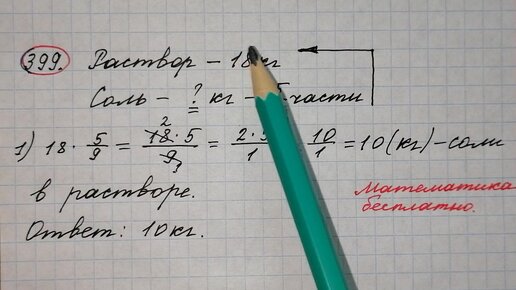 399. Раствор – 18 кг
Соль – ? кг – части
1) 18 · 5/9 = 18 · 5/9 = 2 · 5/1 = 10/1 = 10 (кг) – соли
в растворе.
Ответ: 10 кг.
Математика
бесплатно.